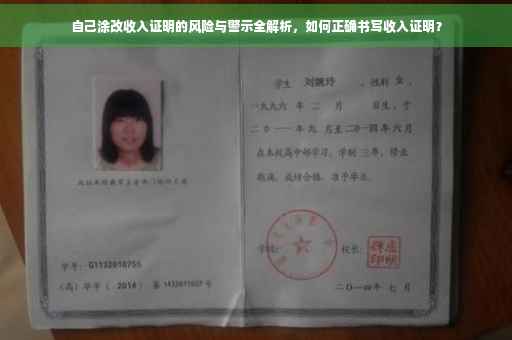 自己涂改收入证明的风险与警示全解析，如何正确书写收入证明？
学生 刘婉玲 ，性别 女 ，
一九九六 年 二 月 日生，于
二〇一一年九 月至二〇一四年 六 月
在本校高中部学习，学制 三年，修业
期满，成绩合格，准予毕业。
学校： 校长：
学号：G1132010755
（高）毕字（ 2014 ）第 1432011027 号
二〇一四年 七 月